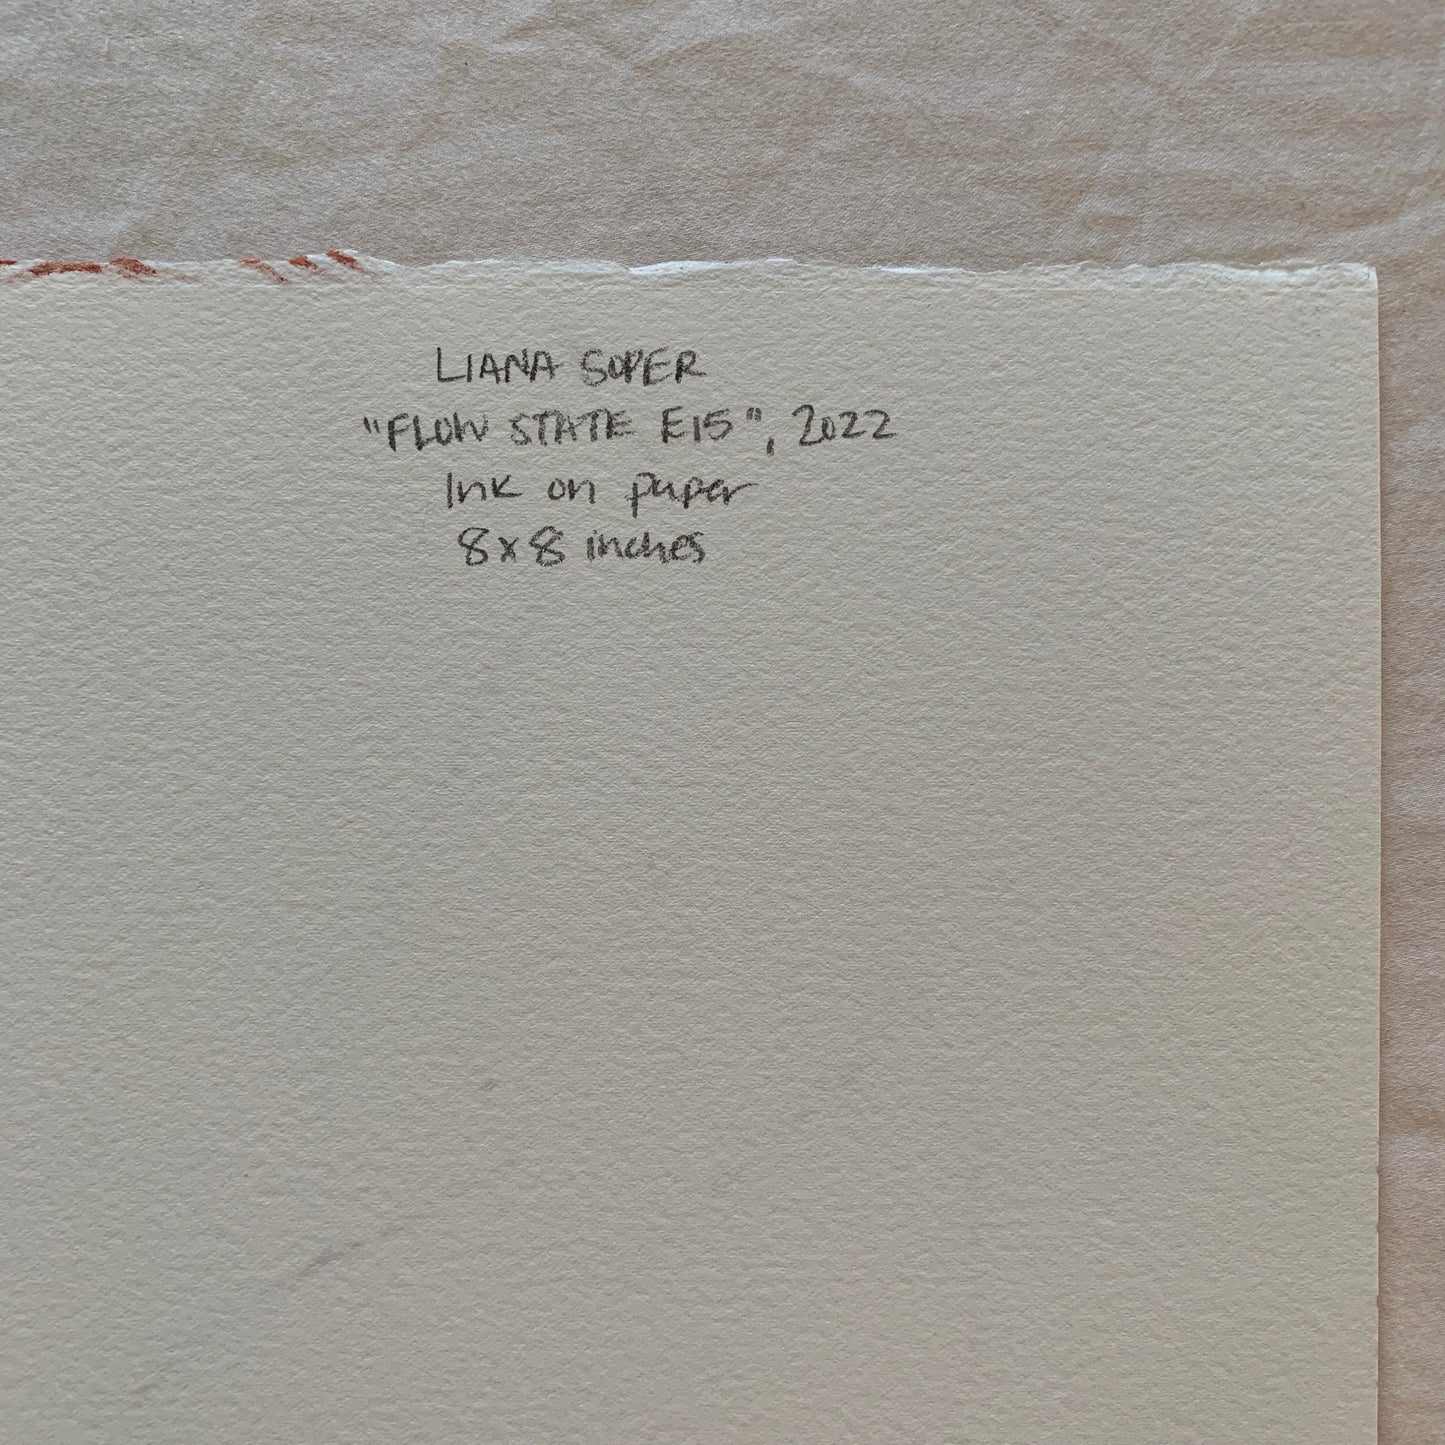 LIANA SOPER
"FLOW STATE E15", 2022
Ink on paper
8x8 inches